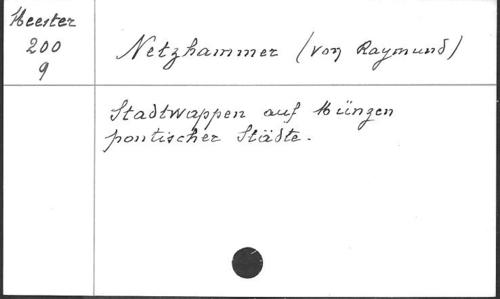 Heester
200
9
Netzhammer (von Raymund)
Stadtwappen auf Münzen
pontischer Städte.